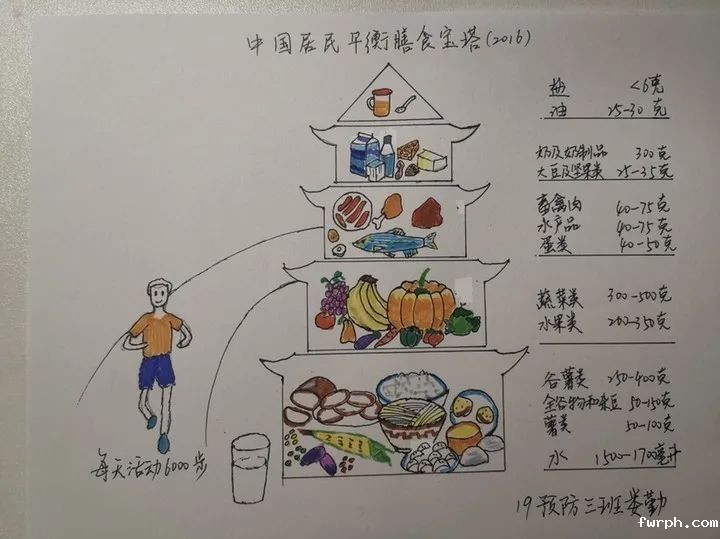 中国居民平衡膳食宝塔(2016)
盐 <6克
油 25-30克
奶及奶制品 300克
大豆及坚果类 25-35克
畜禽肉 40-75克
水产品 40-75克
蛋类 40-50克
蔬菜类 300-500克
水果类 200-350克
谷薯类 250-400克
全谷物和杂豆 50-150克
薯类 50-100克
水 1500-1700毫升
每天活动6000步
19预防三班娄勤
fwrph.com